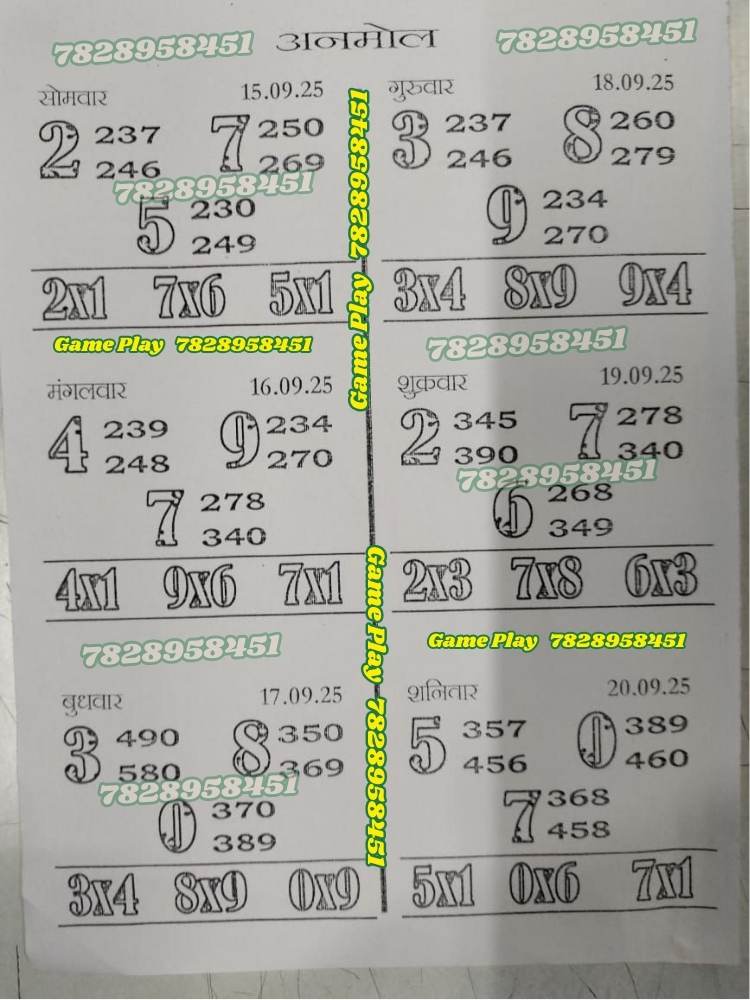 7828958451 अनमोल 7828958451
सोमवार 15.09.25
2 237 7 250
246 269
7828958451
5 230
249
2x1 7x6 5x1
Game Play 7828958451
मंगलवार 16.09.25
4 239 9 234
248 270
7 278
340
4x1 9x6 7x1
7828958451
बुधवार 17.09.25
3 490 8 350
580 369
7828958451
0 370
389
3x4 8x9 0x9
Game Play 7828958451
Game Play 7828958451
गुरुवार 18.09.25
3 237 8 260
246 279
9 234
270
3x4 8x9 9x4
7828958451
शुक्रवार 19.09.25
2 345 7 278
390 340
7828958451
6 268
349
2x3 7x8 6x3
Game Play 7828958451
शनिवार 20.09.25
5 357 0 389
456 460
7 368
458
5x1 0x6 7x1